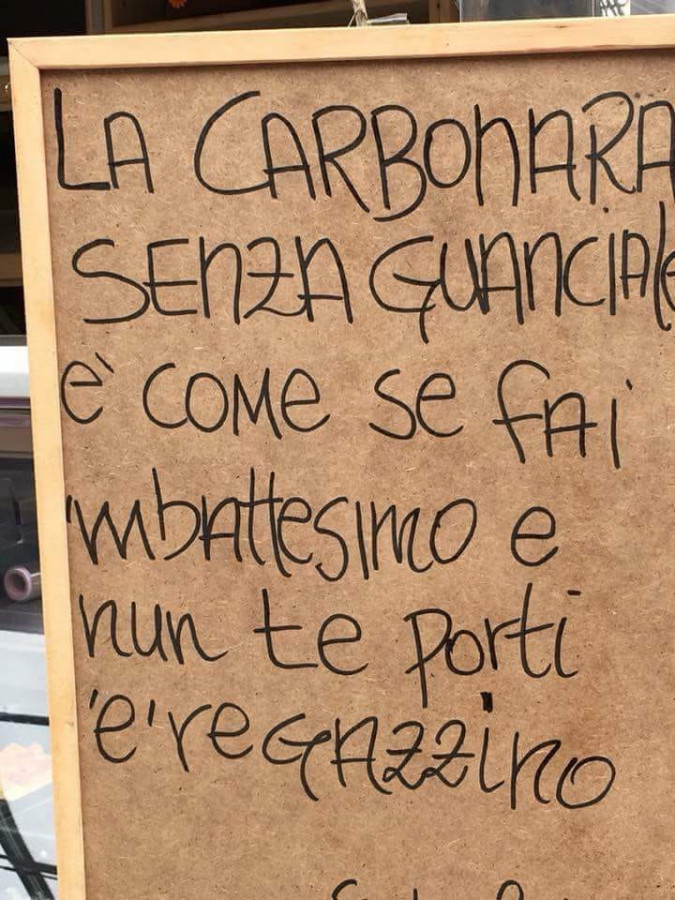 LA CARBONARA
SENZA GUANCIALE
e' COME se fAI
'mbAttesIMO e
nun te porti
'e' reGAZZino